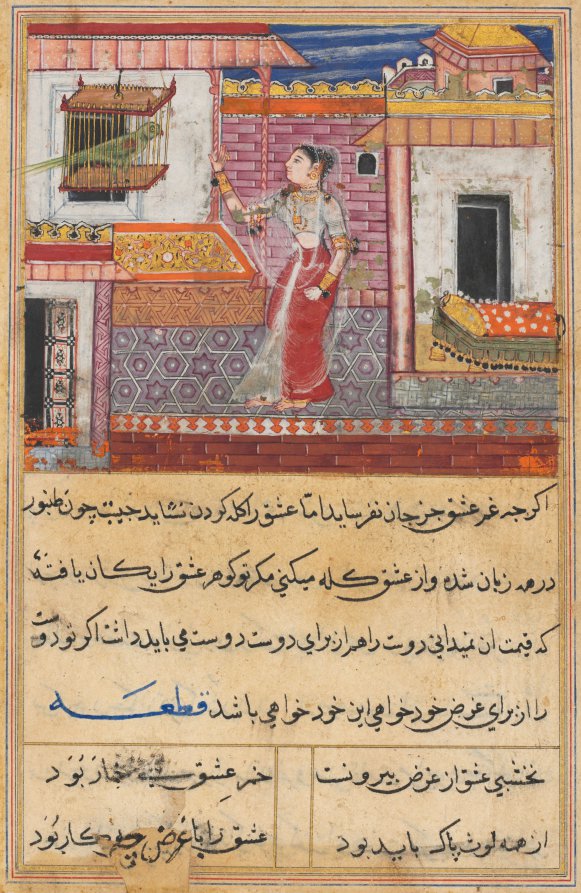 اکرجه غم عشق جز جان نفرساید اما عشق را کله کردن نشاید جیست چون طنبور
درمه زبان شده و از عشق کله میکنی مکر تو کوهر عشق رایکان یافتهٔ
که قیمت ان نمیدانی دوست را هم از برای دوست دوست می باید داشت اکر تو دوست
را از برای غرض خود خواهی این خود خواهی باشد قطعه
نخشبی عشق از غرض بیرونست
خمر عشق نجاز بود
از همه لوث پاک باید بود
عشق را با غرض چه کار بود